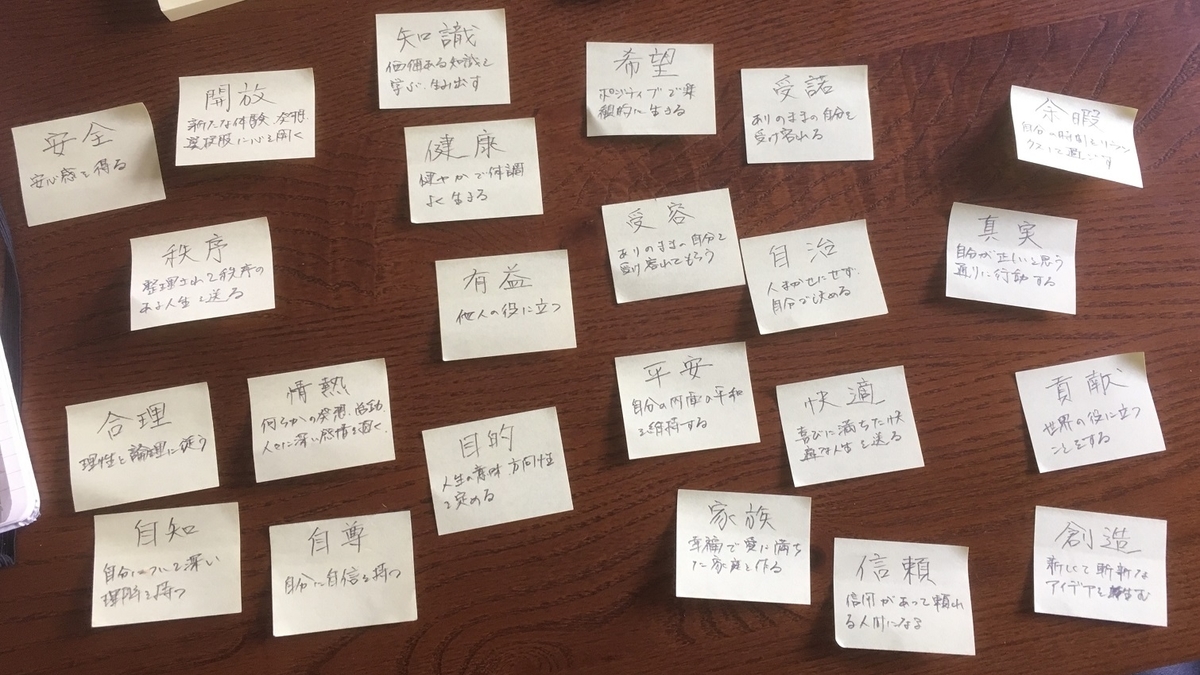 知識
価値ある知識を
学ぶ、生み出す
希望
ポジティブで楽
観的に生きる
受諾
ありのままの自分を
受け容れる
余暇
自分の時間をリラッ
クスして過ごす
開放
新たな体験、発想、
選択肢に心を開く
安全
安心感を得る
健康
健やかで体調
よく生きる
受容
ありのままの自分を
受け容れてもらう
自治
人まかせにせず、
自分で決める
真実
自分が正しいと思う
通りに行動する
秩序
整理されて秩序の
ある人生を送る
有益
他人の役に立つ
合理
理性と論理に従う
情熱
何らかの発想、活動、
人々に深い感情を抱く
目的
人生の意味、方向性
を定める
平安
自分の内面の平和
を維持する
快適
喜びに満ちた快
適な人生を送る
貢献
世界の役に立つ
ことをする
自知
自分について深い
理解を持つ
自尊
自分に自信を持つ
家族
幸福で愛に満ち
た家庭を作る
信頼
信用があって頼れ
る人間になる
創造
新しくて斬新な
アイデアを生む